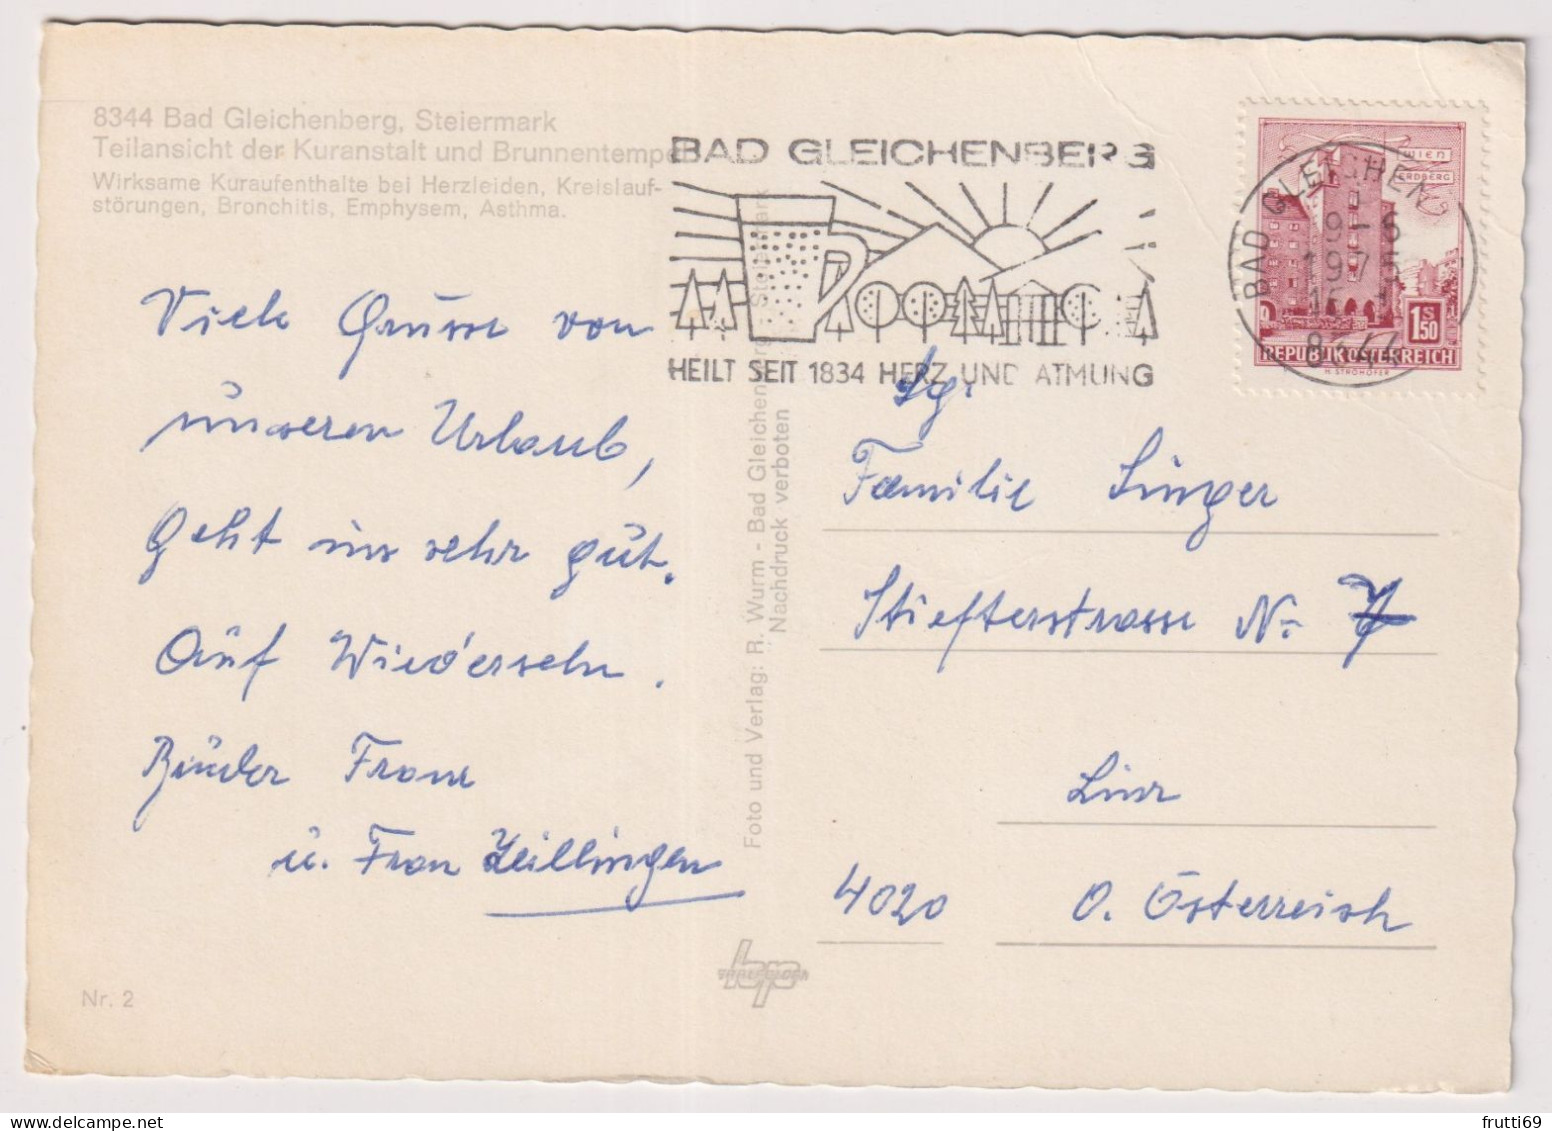 8344 Bad Gleichenberg, Steiermark
Teilansicht der Kuranstalt und Brunnentempel
Wirksame Kuraufenthalte bei Herzleiden, Kreislauf-
störungen, Bronchitis, Emphysem, Asthma.
BAD GLEICHENBERG
HEILT SEIT 1834 HERZ UND ATMUNG
BAD GLEICHENB
9-6
1975
8344
WIEN
ERDBERG
1.50 S
REPUBLIK ÖSTERREICH
H. STROHOFER
Viele Grüsse von
unseren Urlaub,
Geht uns sehr gut.
Auf Wiedersehn.
Bruder Franz
u. Frau Zeillinger
Foto und Verlag: R. Wurm - Bad Gleichenberg, Steiermark
Nachdruck verboten
Fg.
Familie Singer
Stiefterstrasse Nr. 7
Linz
4020 O. Österreich
Nr. 2